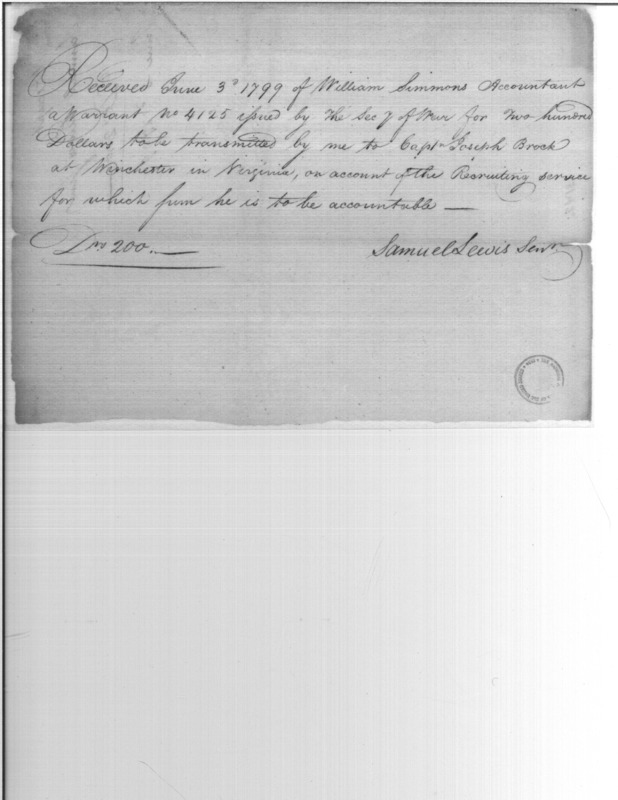 Received June 3d 1799 of William Simmons Accountant
a Warrant No 4125 issued by the Secy of War for Two hundred
Dollars to be transmitted by me to Captn Joseph Brock
at Winchester in Virginia, on account of the Recruiting service
for which sum he is to be accountable —
Drs 200.—
Samuel Lewis Senr